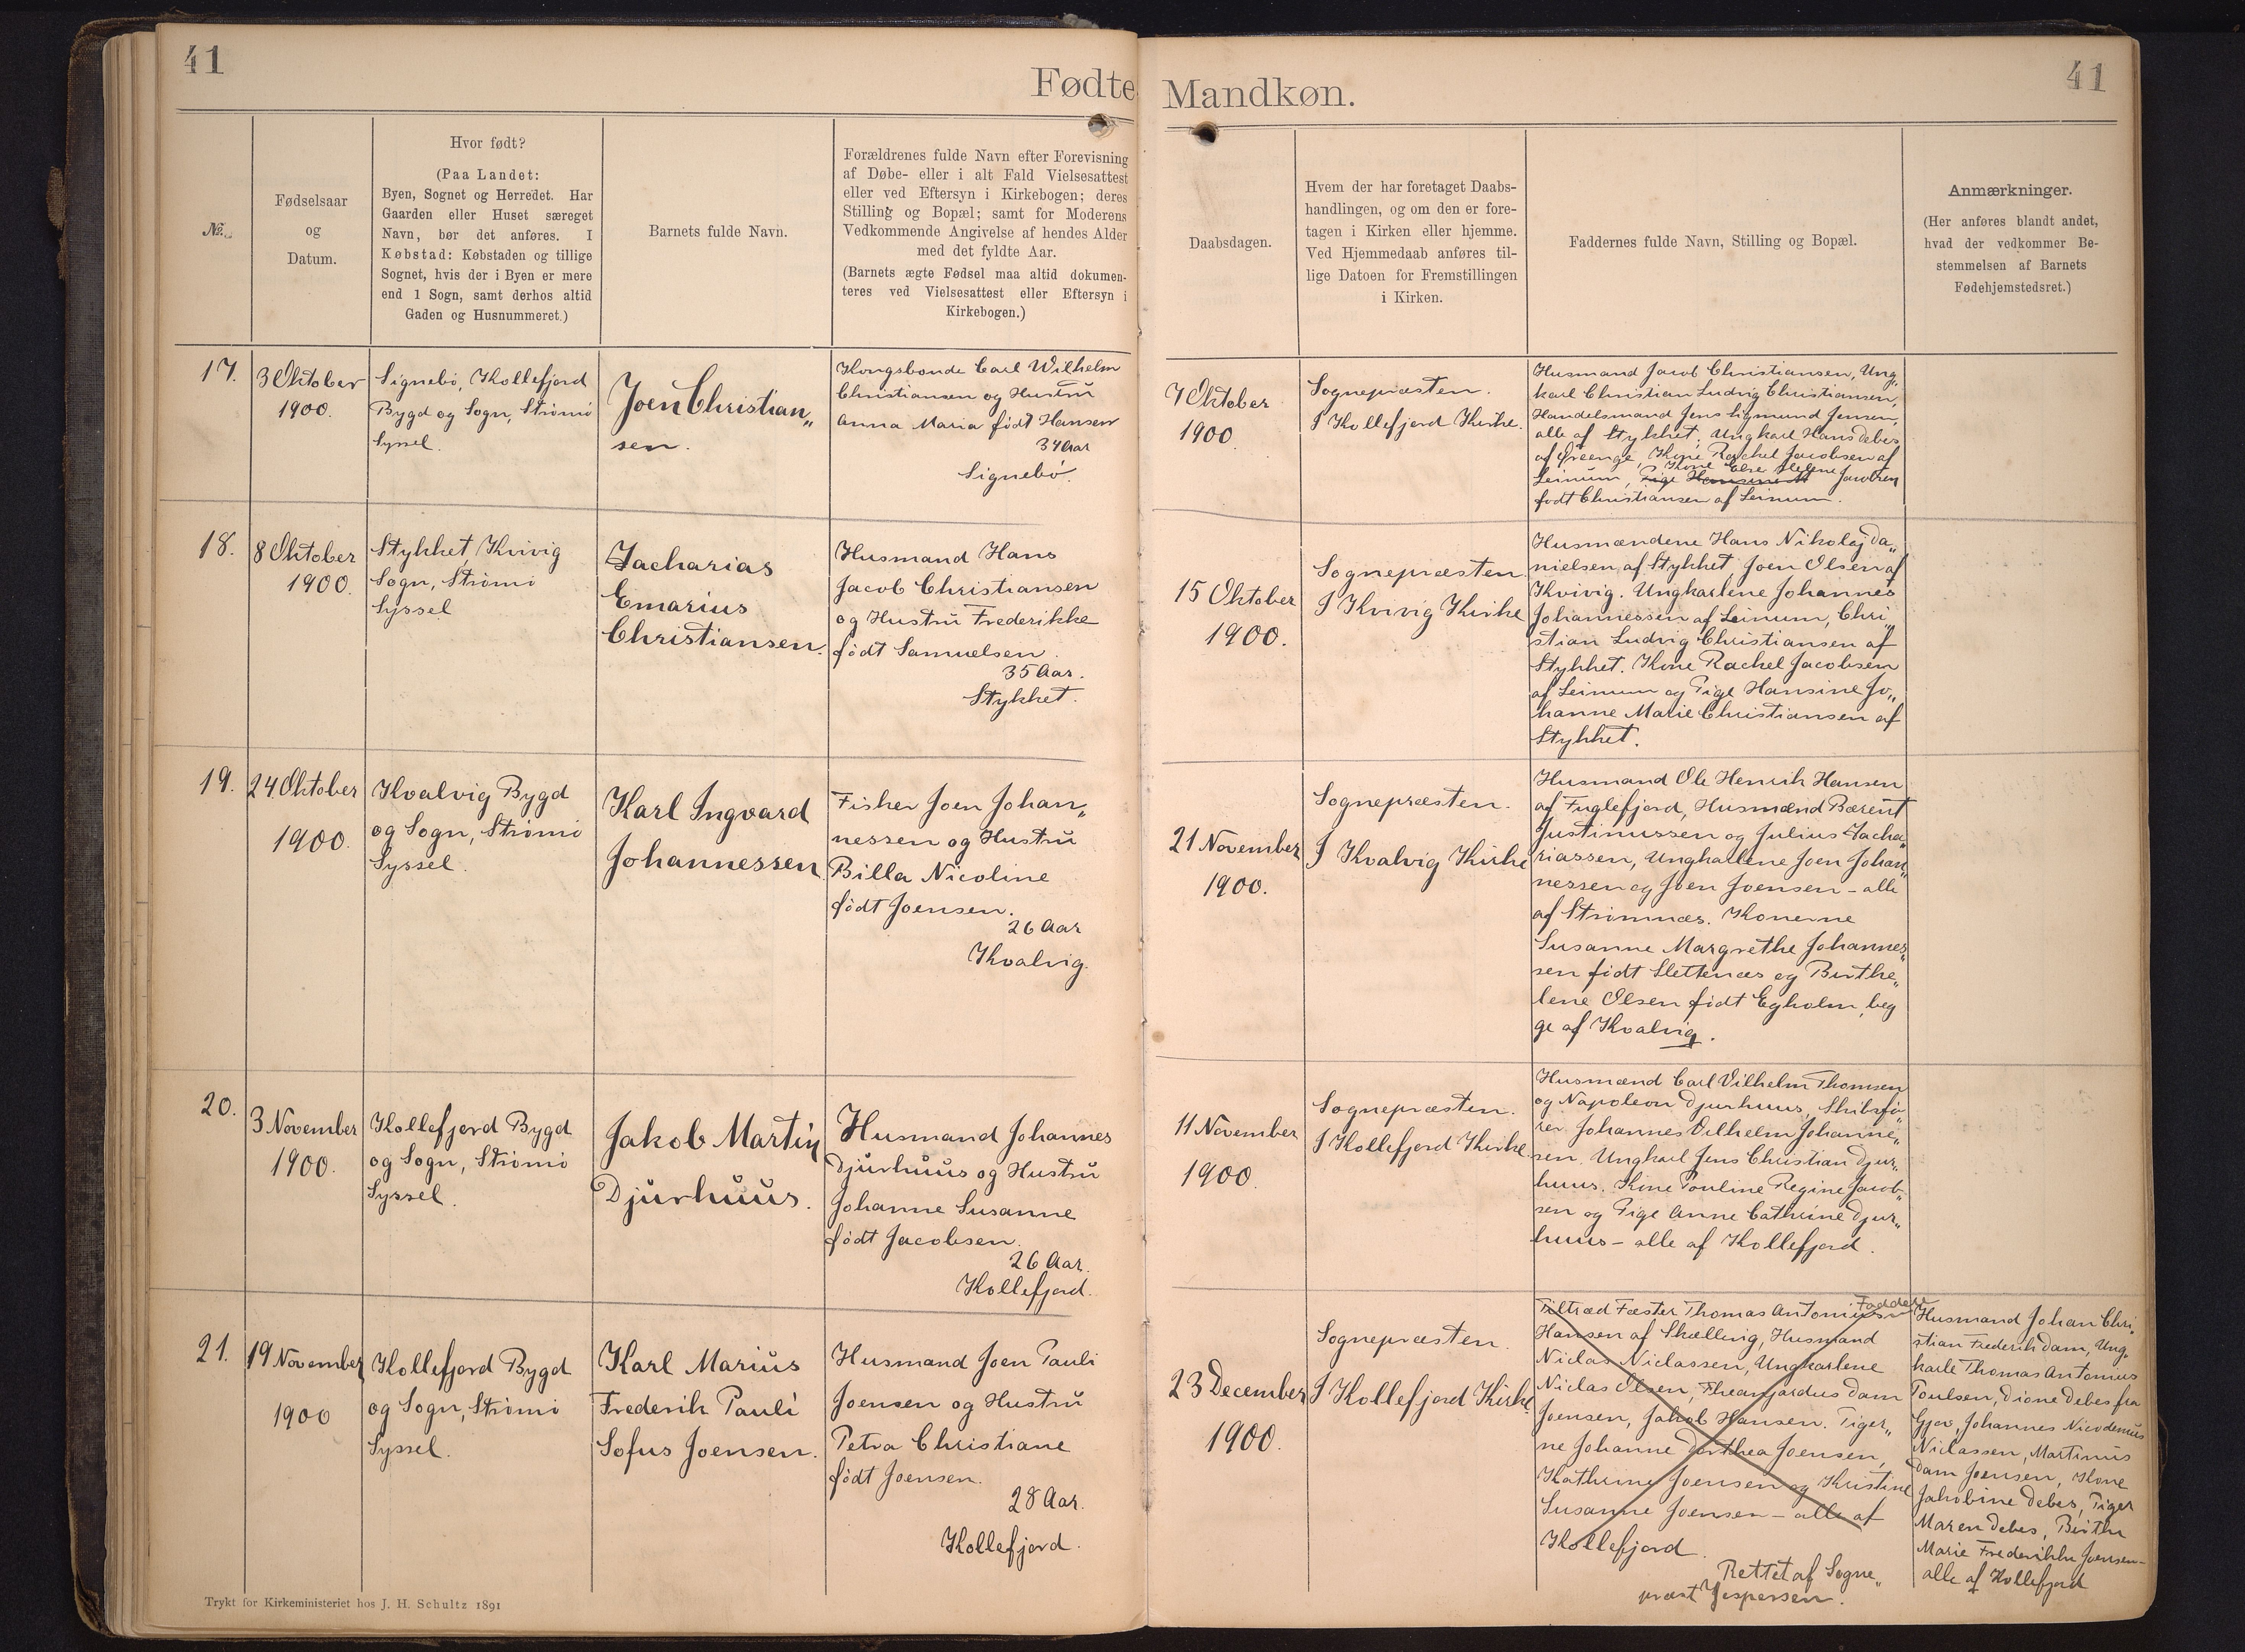 41
Fødte
Mandkøn.
41
№.
Fødselsaar
og
Datum.
Hvor født?
(Paa Landet:
Byen, Sognet og Herredet. Har
Gaarden eller Huset særeget
Navn, bør det anføres. I
Købstad: Købstaden og tillige
Sognet, hvis der i Byen er mere
end 1 Sogn, samt derhos altid
Gaden og Husnummeret.)
Barnets fulde Navn.
Forældrenes fulde Navn efter Forevisning
af Døbe- eller i alt Fald Vielsesattest
eller ved Eftersyn i Kirkebogen; deres
Stilling og Bopæl; samt for Moderens
Vedkommende Angivelse af hendes Alder
med det fyldte Aar.
(Barnets ægte Fødsel maa altid dokumen-
teres ved Vielsesattest eller Eftersyn i
Kirkebogen.)
Daabsdagen.
Hvem der har foretaget Daabs-
handlingen, og om den er fore-
tagen i Kirken eller hjemme.
Ved Hjemmedaab anføres til-
lige Datoen for Fremstillingen
i Kirken.
Faddernes fulde Navn, Stilling og Bopæl.
Anmærkninger.
(Her anføres blandt andet,
hvad der vedkommer Be-
stemmelsen af Barnets
Fødehjemstedsret.)
17.
3 Oktober
1900.
Signebö, Kollefjord
Bygd og Sogn, Strömö
Syssel.
Joen Christian„
sen.
Kongsbonde Carl Wilhelm
Christiansen og Hustru
Anna Maria födt Hansen
34 Aar
Signebö.
7 Oktober
1900.
Sognepræsten.
I Kollefjord Kirke.
Husmand Jacob Christiansen, Ung„
karl Christian Ludvig Christiansen,
Handelsmand Jens Sigmund Jensen,
alle af Stykket, Ungkarl Hans Debes
af Kone Rachel Jacobsen af
Kone Else Helene
Leinum, Pige Hansine M Jacobsen
födt Christiansen af Leinum.
18.
8 Oktober
1900.
Stykket, Kvivig
Sogn, Strömö
Syssel
Zacharias
Emarius
Christiansen.
Husmand Hans
Jacob Christiansen
og Hustru Frederikke
födt Samuelsen
35 Aar.
Stykket.
15 Oktober
1900.
Sognepræsten
I Kvivig Kirke
Husmændene Hans Nikolaj Da„
nielsen af Stykket Joen Olsen af
Kvivig. Ungkarlene Johannes
Johannessen af Leinum, Chri„
stian Ludvig Christiansen af
Stykket. Kone Rachel Jacobsen
af Leinum og Pige Hansine Jo„
hanne Marie Christiansen af
Stykket.
19.
24 Oktober
1900.
Kvalvig Bygd
og Sogn, Strömö
Syssel.
Karl Ingvard
Johannessen
Fisker Joen Johan„
nessen og Hustru
Billa Nicoline
födt Joensen.
26 Aar
Kvalvig.
21 November
1900.
Sognepræsten.
I Kvalvig Kirke
Husmand Ole Henrik Hansen
af Fuglefjord, Husmænd Bærent
Justinussen og Julius Zacha„
riassen, Ungkarlene Joen Johan„
nessen og Joen Joensen - alle
af Strömnæs. Konerne
Susanne Margrethe Johannes„
sen födt Slettenæs og Birthe„
lene Olsen födt Egholm, beg
ge af Kvalvig.
20.
3 November
1900.
Kollefjord Bygd
og Sogn, Strömö
Syssel.
Jakob Martin
Djurhuus.
Husmand Johannes
Djurhuus og Hustru
Johanne Susanne
födt Jacobsen.
26 Aar.
Kollefjord.
11 November
1900.
Sognepræsten.
I Kollefjord Kirke.
Husmænd Carl Vilhelm Thomsen
og Napoleon Djurhuus, Skibsfö„
rer Johannes Vilhelm Johanne„
sen. Ungkarl Jens Christian Djur„
huus. Kone Pouline Regine Jacob„
sen og Pige Anne Cathrine Djur„
huus - alle af Kollefjord.
21.
19 November
1900
Kollefjord Bygd
og Sogn, Strömö
Syssel.
Karl Marius
Frederik Pauli
Sofus Joensen.
Husmand Joen Pauli
Joensen og Hustru
Petra Christiane
födt Joensen.
28 Aar.
Kollefjord.
23 December
1900.
Sognepræsten.
I Kollefjord Kirke
Tiltræd Fæster Thomas Antonius
Hansen af Skællvig, Husmand
Niclas Niclassen, Ungkarlene
Niclas Olsen, Dam
Joensen, Jakob Hansen. Piger„
ne Johanne Dorthea Joensen,
Kathrine Joensen og Kristine
Susanne Joensen - alle af
Kollefjord.
Rettet af Sogne„
præst Jespersen.
Faddere
Husmand Johan Chri„
stian Frederik Dam, Ung„
karle Thomas Antonius
Poulsen, Dione Debes fra
Gjov, Johannes Nicodemus
Niclassen, Martinus
Dam Joensen, Kone
Jakobine Debes, Piger
Maren Debes, Birthe
Marie Frederikke Joensen -
alle af Kollefjord
Trykt for Kirkeministeriet hos J. H. Schultz 1891